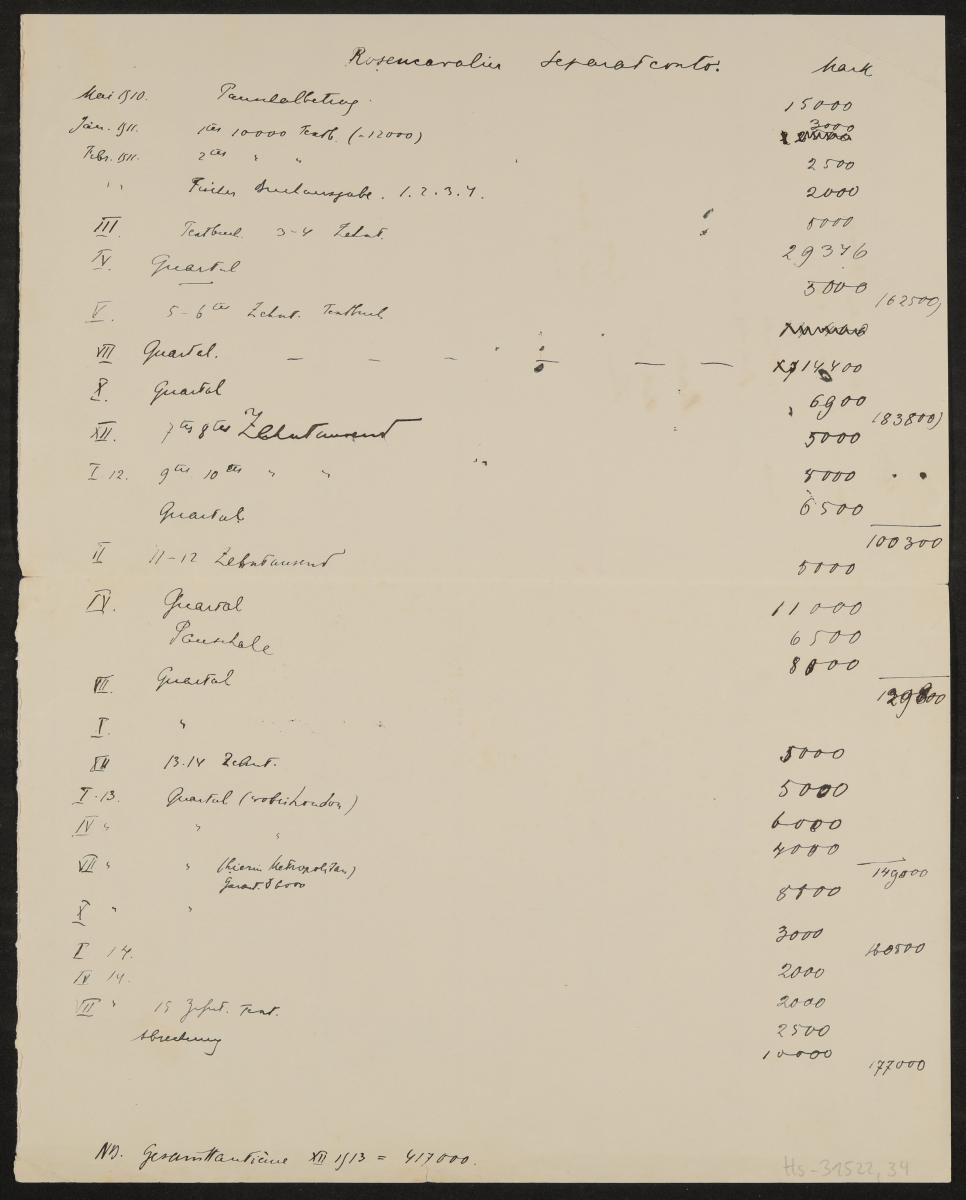 Rosencavalier Separatconto. Mark
Mai 1910. Pauschalbetrag. 15000
Jän. 1911. 1tes 10000 Textb. (-12000) 3000
Febr. 1911. 2tes " " 2500
" " Fürstner Buchausgabe. 1.2.3.4. 2000
III. Textbuch 3-4 Zehnt. 5000
IV. Quartal 29376
V. 5-6tes Zehnt. Textbuch 5000 (62500)
VII Quartal. 14400
X. Quartal 6900 (83800)
XII. 7tes 8tes Zehntausend 5000
I. 12. 9tes 10tes " " 5000
Quartal 6500
100300
II 11-12 Zehntausend 5000
IV. Quartal 11000
Pauschale 6500
VII. Quartal 8000
"
XII 13.14 Zehnt. 5000
I. 13. Quartal (wobei London) 5000
IV " " " 6000
4000
VII " " (hierin Metropolitan) 149000
Garant. $ 6000
X " "
I 14. 3000 160500
IV 14. 2000
VII " 15 Zehnt. Text. 2000
Abrechnung 2500
10000 177000
NB. Gesammttantième XII 1913 = 417000.
Hs-31522,34